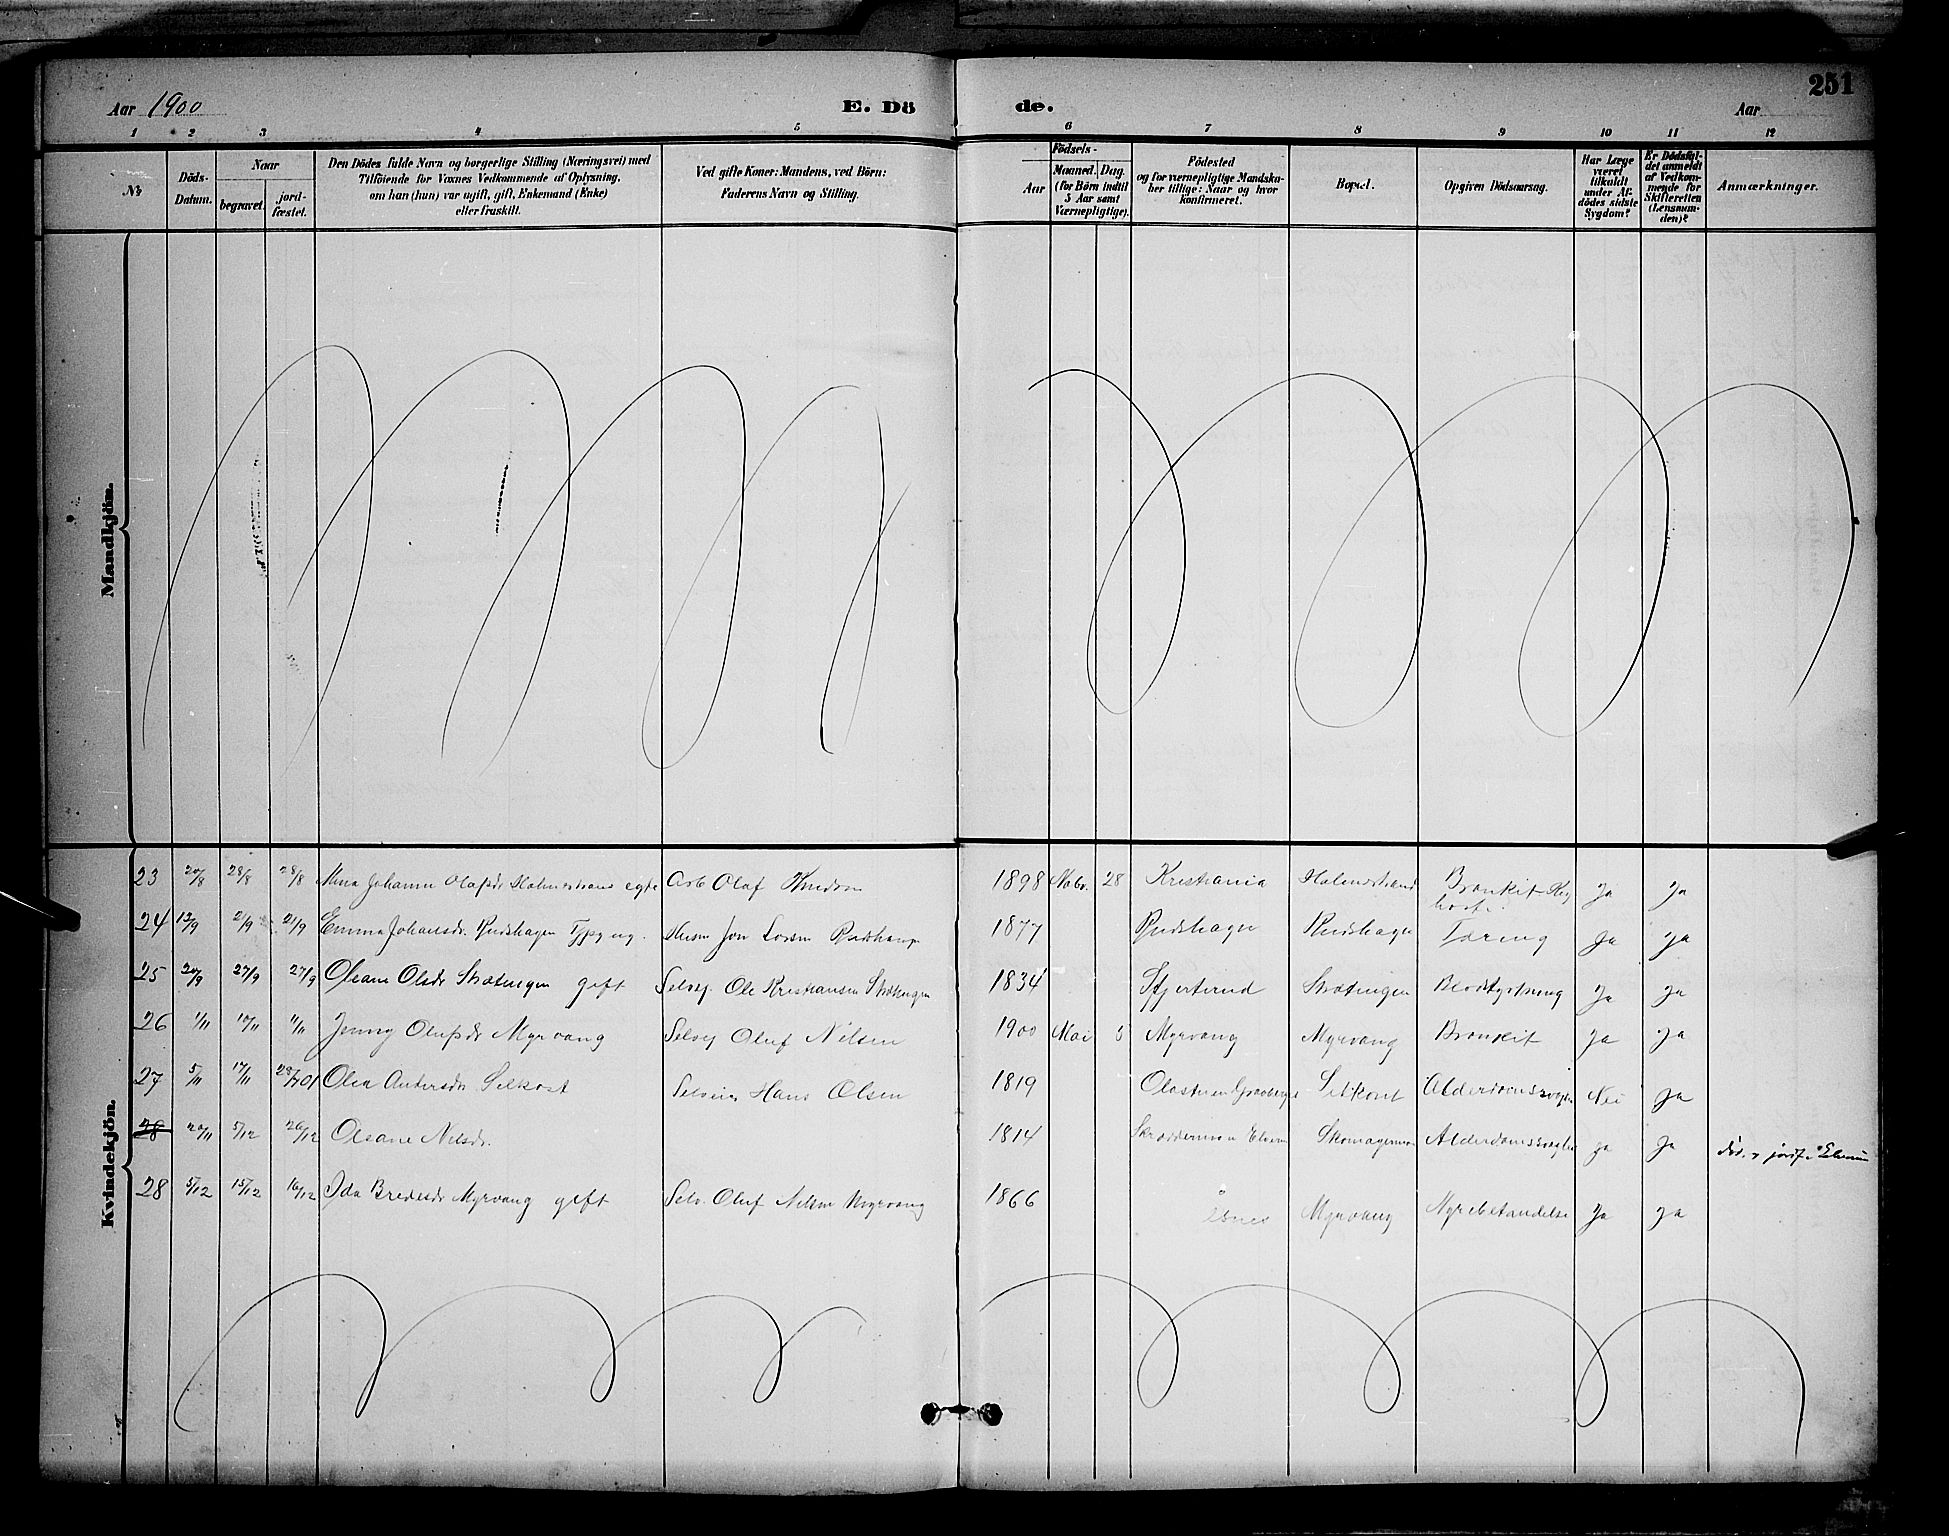 251
Aar 1900 E. Dö de. Aar
1 2 3 4 5 6 7 8 9 10 11 12
No
Döds-Datum.
Naar
begravet.
jord-fæstet.
Den Dödes fulde Navn og borgerlige Stilling (Næringsvei) med
Tilföiende for Voxnes Vedkommende af Oplysning,
om han (hun) var ugift, gift, Enkemand (Enke)
eller fraskilt.
Ved gifte Koner: Mandens, ved Börn:
Faderens Navn og Stilling.
Födsels-
Aar
Maaned. Dag.
(for Börn indtil
5 Aar samt
Værnepligtige).
Födested
og for værnepligtige Mandska-
ber tillige: Naar og hvor
konfirmeret.
Bopæl.
Opgiven Dödsaarsag.
Har Læge
været
tilkaldt
under Af-
dödes sidste
Sygdom?
Er Dödsfal-
det anmeldt
af Vedkom-
mende for
Skifteretten
(Lensman-
den)?
Anmærkninger.
Mandkjön.
Kvindekjön.
23 20/8 28/8 28/8 Johanne Olafsdr Holmestrand egte Arb Olaf Knudsen 1898 Novbr. 28 Kristiania Holmestrand Bronkit Ja Ja
24 2/9 21/9 Emma Johansdr. Jon 1877 Tæring Ja Ja
25 20/9 27/9 27/9 Oleane Olsdr Strætingen gift Selvej. Ole Kristiansen Strætingen 1834 Stjerterud Strætingen Blodstyrtning Ja Ja
26 1/11 10/11 11/11 Jenny Olufsdr Myrvang Selvej Oluf Nilsen 1900 Mai 5 Myrvang Myrvang Bronkit Ja Ja
27 5/11 17/11 Olea Andersdr Selkost Selveier Hans Olsen 1819 Alderdomssvaghed Nei Ja
28 20/11 5/12 26/12 Oleane Nilsdr. 1814 Elverum Skomagermoen Alderdomssvaghed Ja Ja Elverum
28 5/12 15/12 16/12 Ida Bredesdr Myrvang gift Selv. Oluf Nilsen Myrvang 1866 Åsnes Myrvang Nyrebetændelse Ja Ja